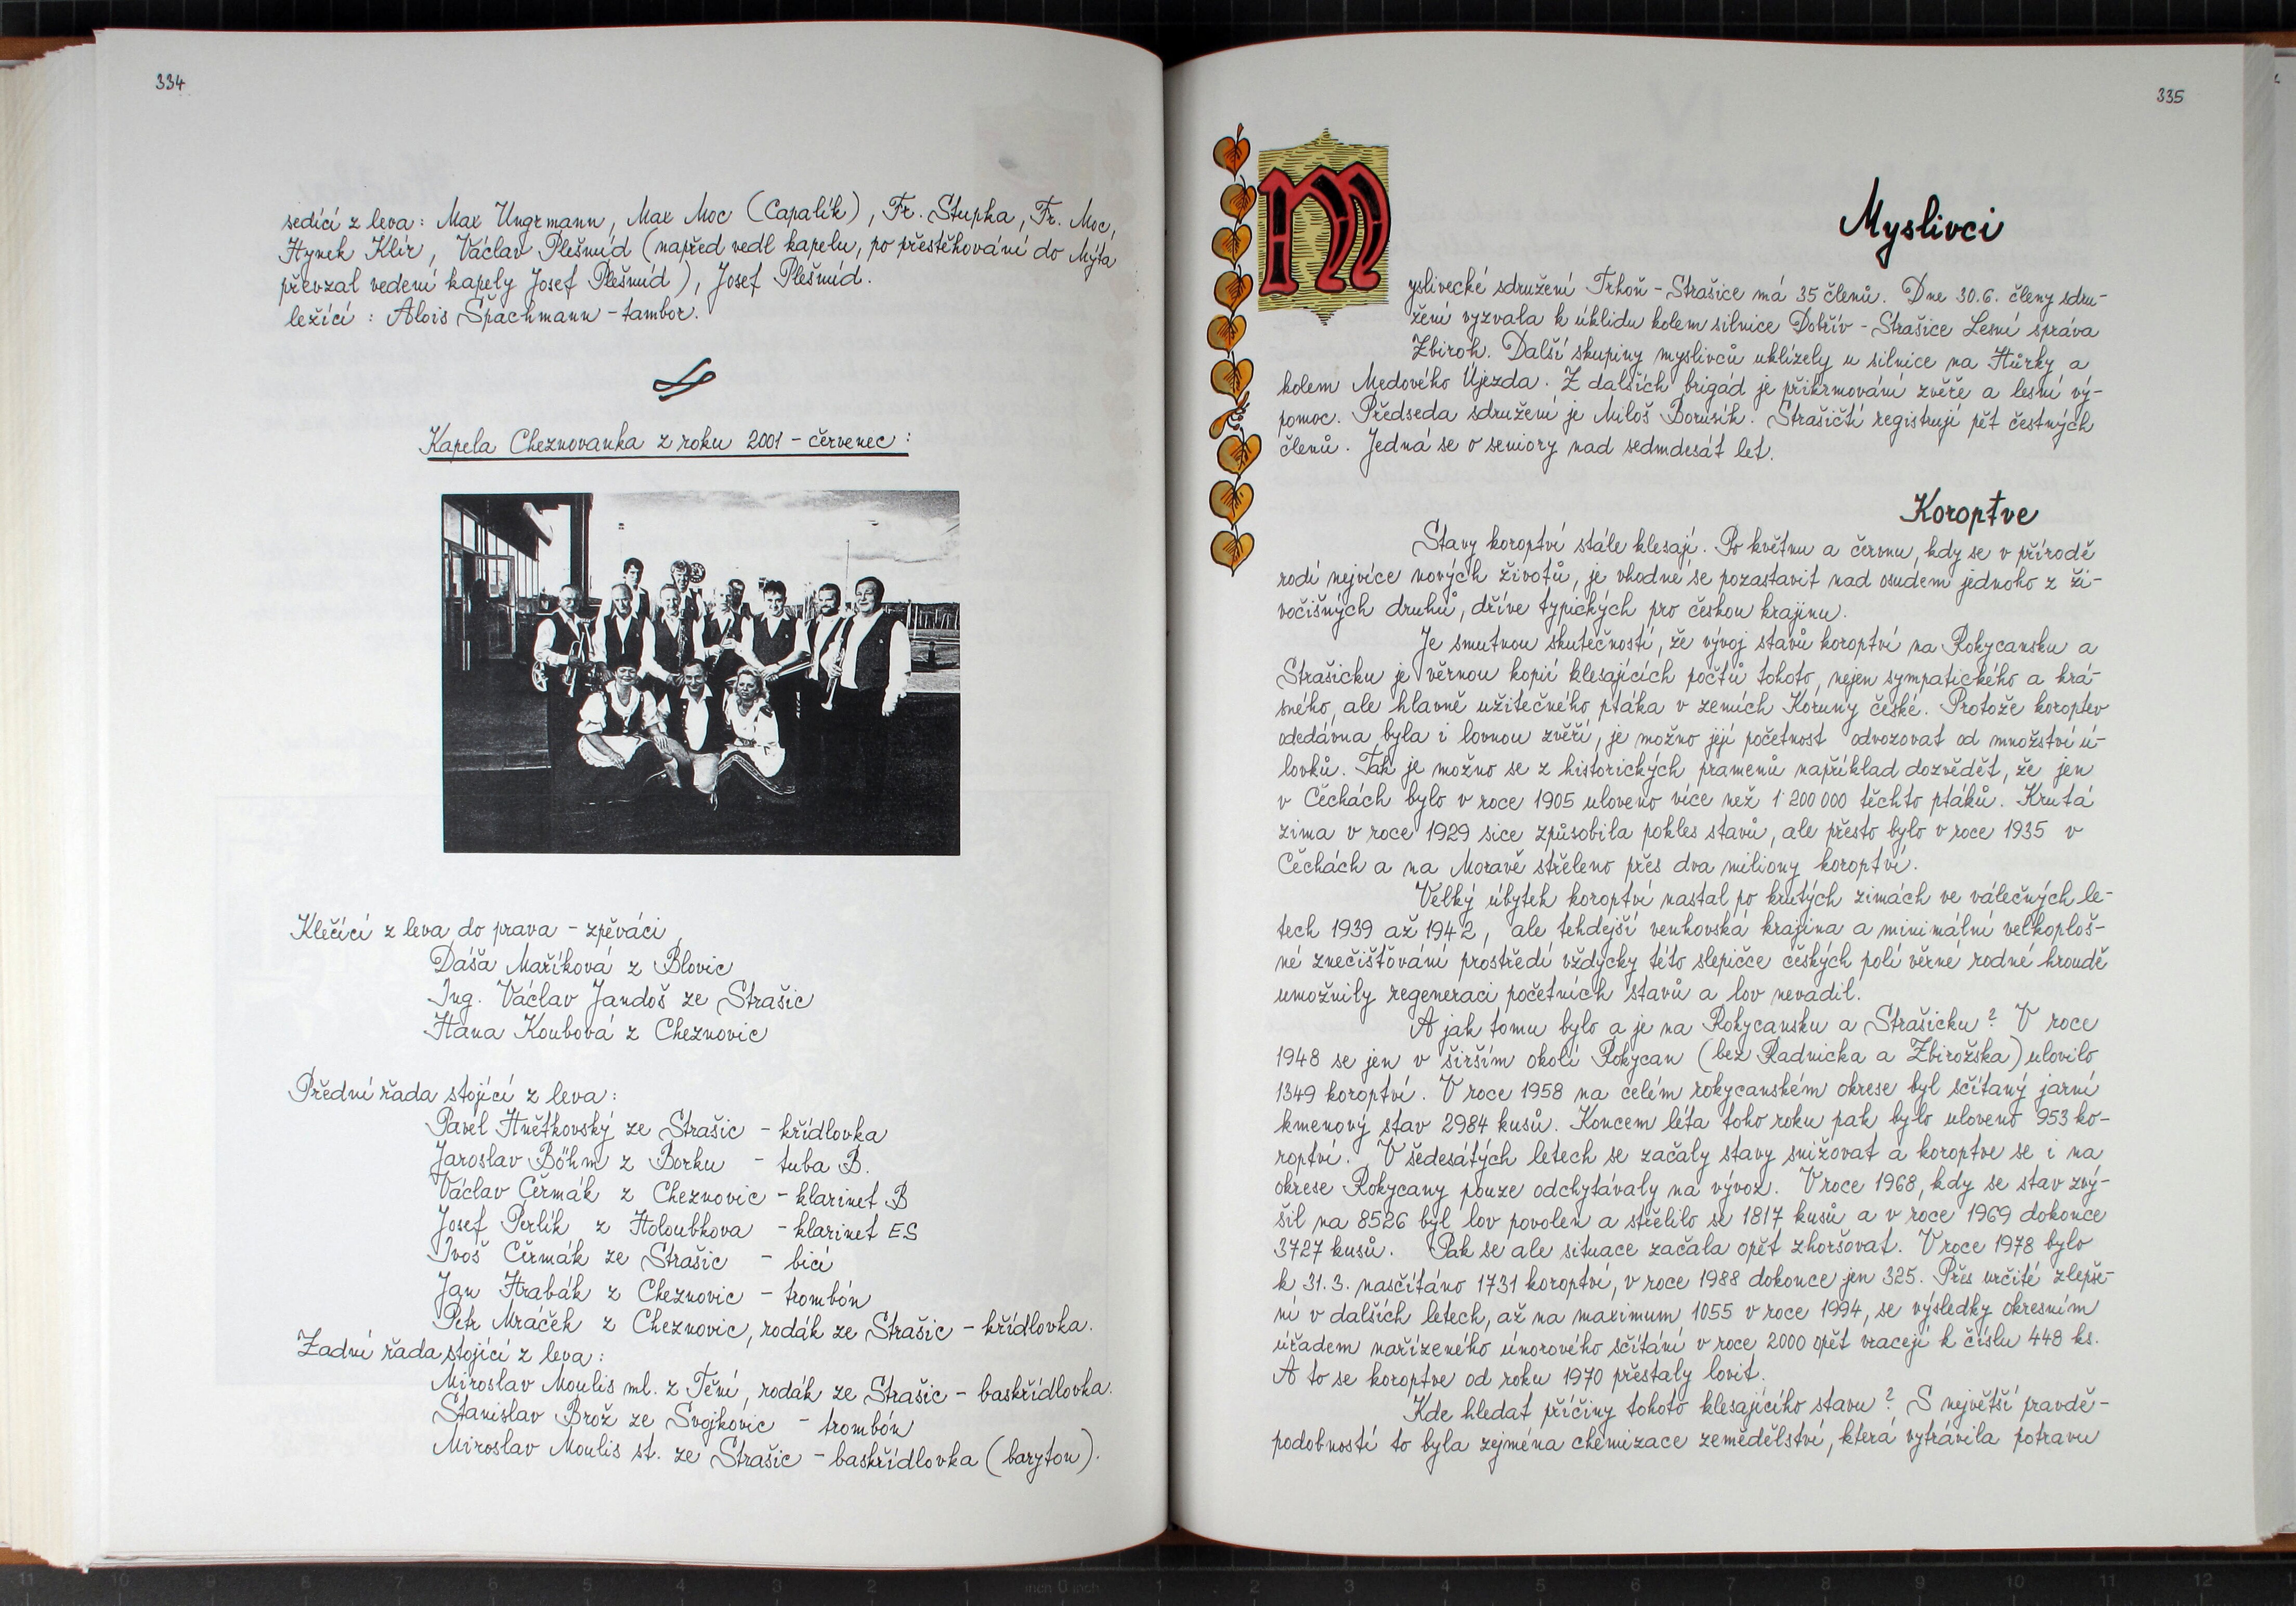 334
sedící z leva: Max Ungrmann, Max Moc (Capalík), Fr. Stupka, Fr. Moc,
Hynek Klír, Václav Plešmíd (napřed vedl kapelu, po přestěhování do Mýta
převzal vedení kapely Josef Plešmíd), Josef Plešmíd.
ležící: Alois Špachmann - tambor.
Kapela Cheznovanka z roku 2001 - červenec:
Klečící z leva do prava - zpěváci
Dáša Maříková z Blovic
Ing. Václav Jandoš ze Strašic
Hana Koubová z Cheznovic
Přední řada stojící z leva:
Pavel Hněťkovský ze Strašic - křídlovka
Jaroslav Böhm z Borku - tuba B.
Václav Čermák z Cheznovic - klarinet B
Josef Perlík z Holoubkova - klarinet ES
Ivoš Čermák ze Strašic - bicí
Jan Hrabák z Cheznovic - trombón
Petr Mráček z Cheznovic, rodák ze Strašic - křídlovka.
Zadní řada stojící z leva:
Miroslav Moulis ml. z Tění, rodák ze Strašic - baskřídlovka.
Stanislav Brož ze Svojkovic - trombón
Miroslav Moulis st. ze Strašic - baskřídlovka (baryton).
335
Myslivci
Myslivecké sdružení Trhoň - Strašice má 35 členů. Dne 30.6. členy sdru-
žení vyzvala k úklidu kolem silnice Dobřív - Strašice Lesní správa
Zbiroh. Další skupiny myslivců uklízely u silnice na Hůrky a
kolem Medového Újezda. Z dalších brigád je přikrmování zvěře a lesní vý-
pomoc. Předseda sdružení je Miloš Borusík. Strašičtí registrují pět čestných
členů. Jedná se o seniory nad sedmdesát let.
Koroptve
Stavy koroptví stále klesají. Po květnu a červnu, kdy se v přírodě
rodí nejvíce nových životů, je vhodné se pozastavit nad osudem jednoho z ži-
vočišných druhů, dříve typických pro českou krajinu.
Je smutnou skutečností, že vývoj stavů koroptví na Rokycansku a
Strašicku je věrnou kopií klesajících počtů tohoto, nejen sympatického a krá-
sného, ale hlavně užitečného ptáka v zemích Koruny české. Protože koroptev
odedávna byla i lovnou zvěří, je možno její početnost odvozovat od množství ú-
lovků. Tak je možno se z historických pramenů například dozvědět, že jen
v Čechách bylo v roce 1905 uloveno více než 1 200 000 těchto ptáků. Krutá
zima v roce 1929 sice způsobila pokles stavů, ale přesto bylo v roce 1935 v
Čechách a na Moravě střeleno přes dva miliony koroptví.
Velký úbytek koroptví nastal po krutých zimách ve válečných le-
tech 1939 až 1942, ale tehdejší venkovská krajina a minimální velkoploš-
né znečišťování prostředí vždycky této slepičce českých polí věrné rodné hroudě
umožnily regeneraci početních stavů a lov nevadil.
A jak tomu bylo a je na Rokycansku a Strašicku? V roce
1948 se jen v širším okolí Rokycan (bez Radnicka a Zbirožska) ulovilo
1349 koroptví. V roce 1958 na celém rokycanském okrese byl sčítaný jarní
kmenový stav 2984 kusů. Koncem léta toho roku pak bylo uloveno 953 ko-
roptví. V šedesátých letech se začaly stavy snižovat a koroptve se i na
okrese Rokycany pouze odchytávaly na vývoz. V roce 1968, kdy se stav zvý-
šil na 8526 byl lov povolen a střelilo se 1817 kusů a v roce 1969 dokonce
3727 kusů. Pak se ale situace začala opět zhoršovat. V roce 1978 bylo
k 31.3. nasčítáno 1731 koroptví, v roce 1988 dokonce jen 325. Přes určité zlepše-
ní v dalších letech, až na maximum 1055 v roce 1994, se výsledky okresním
úřadem nařízeného únorového sčítání v roce 2000 opět vracejí k číslu 448 ks.
A to se koroptve od roku 1970 přestaly lovit.
Kde hledat příčiny tohoto klesajícího stavu? S největší pravdě-
podobností to byla zejména chemizace zemědělství, která vytrávila potravu